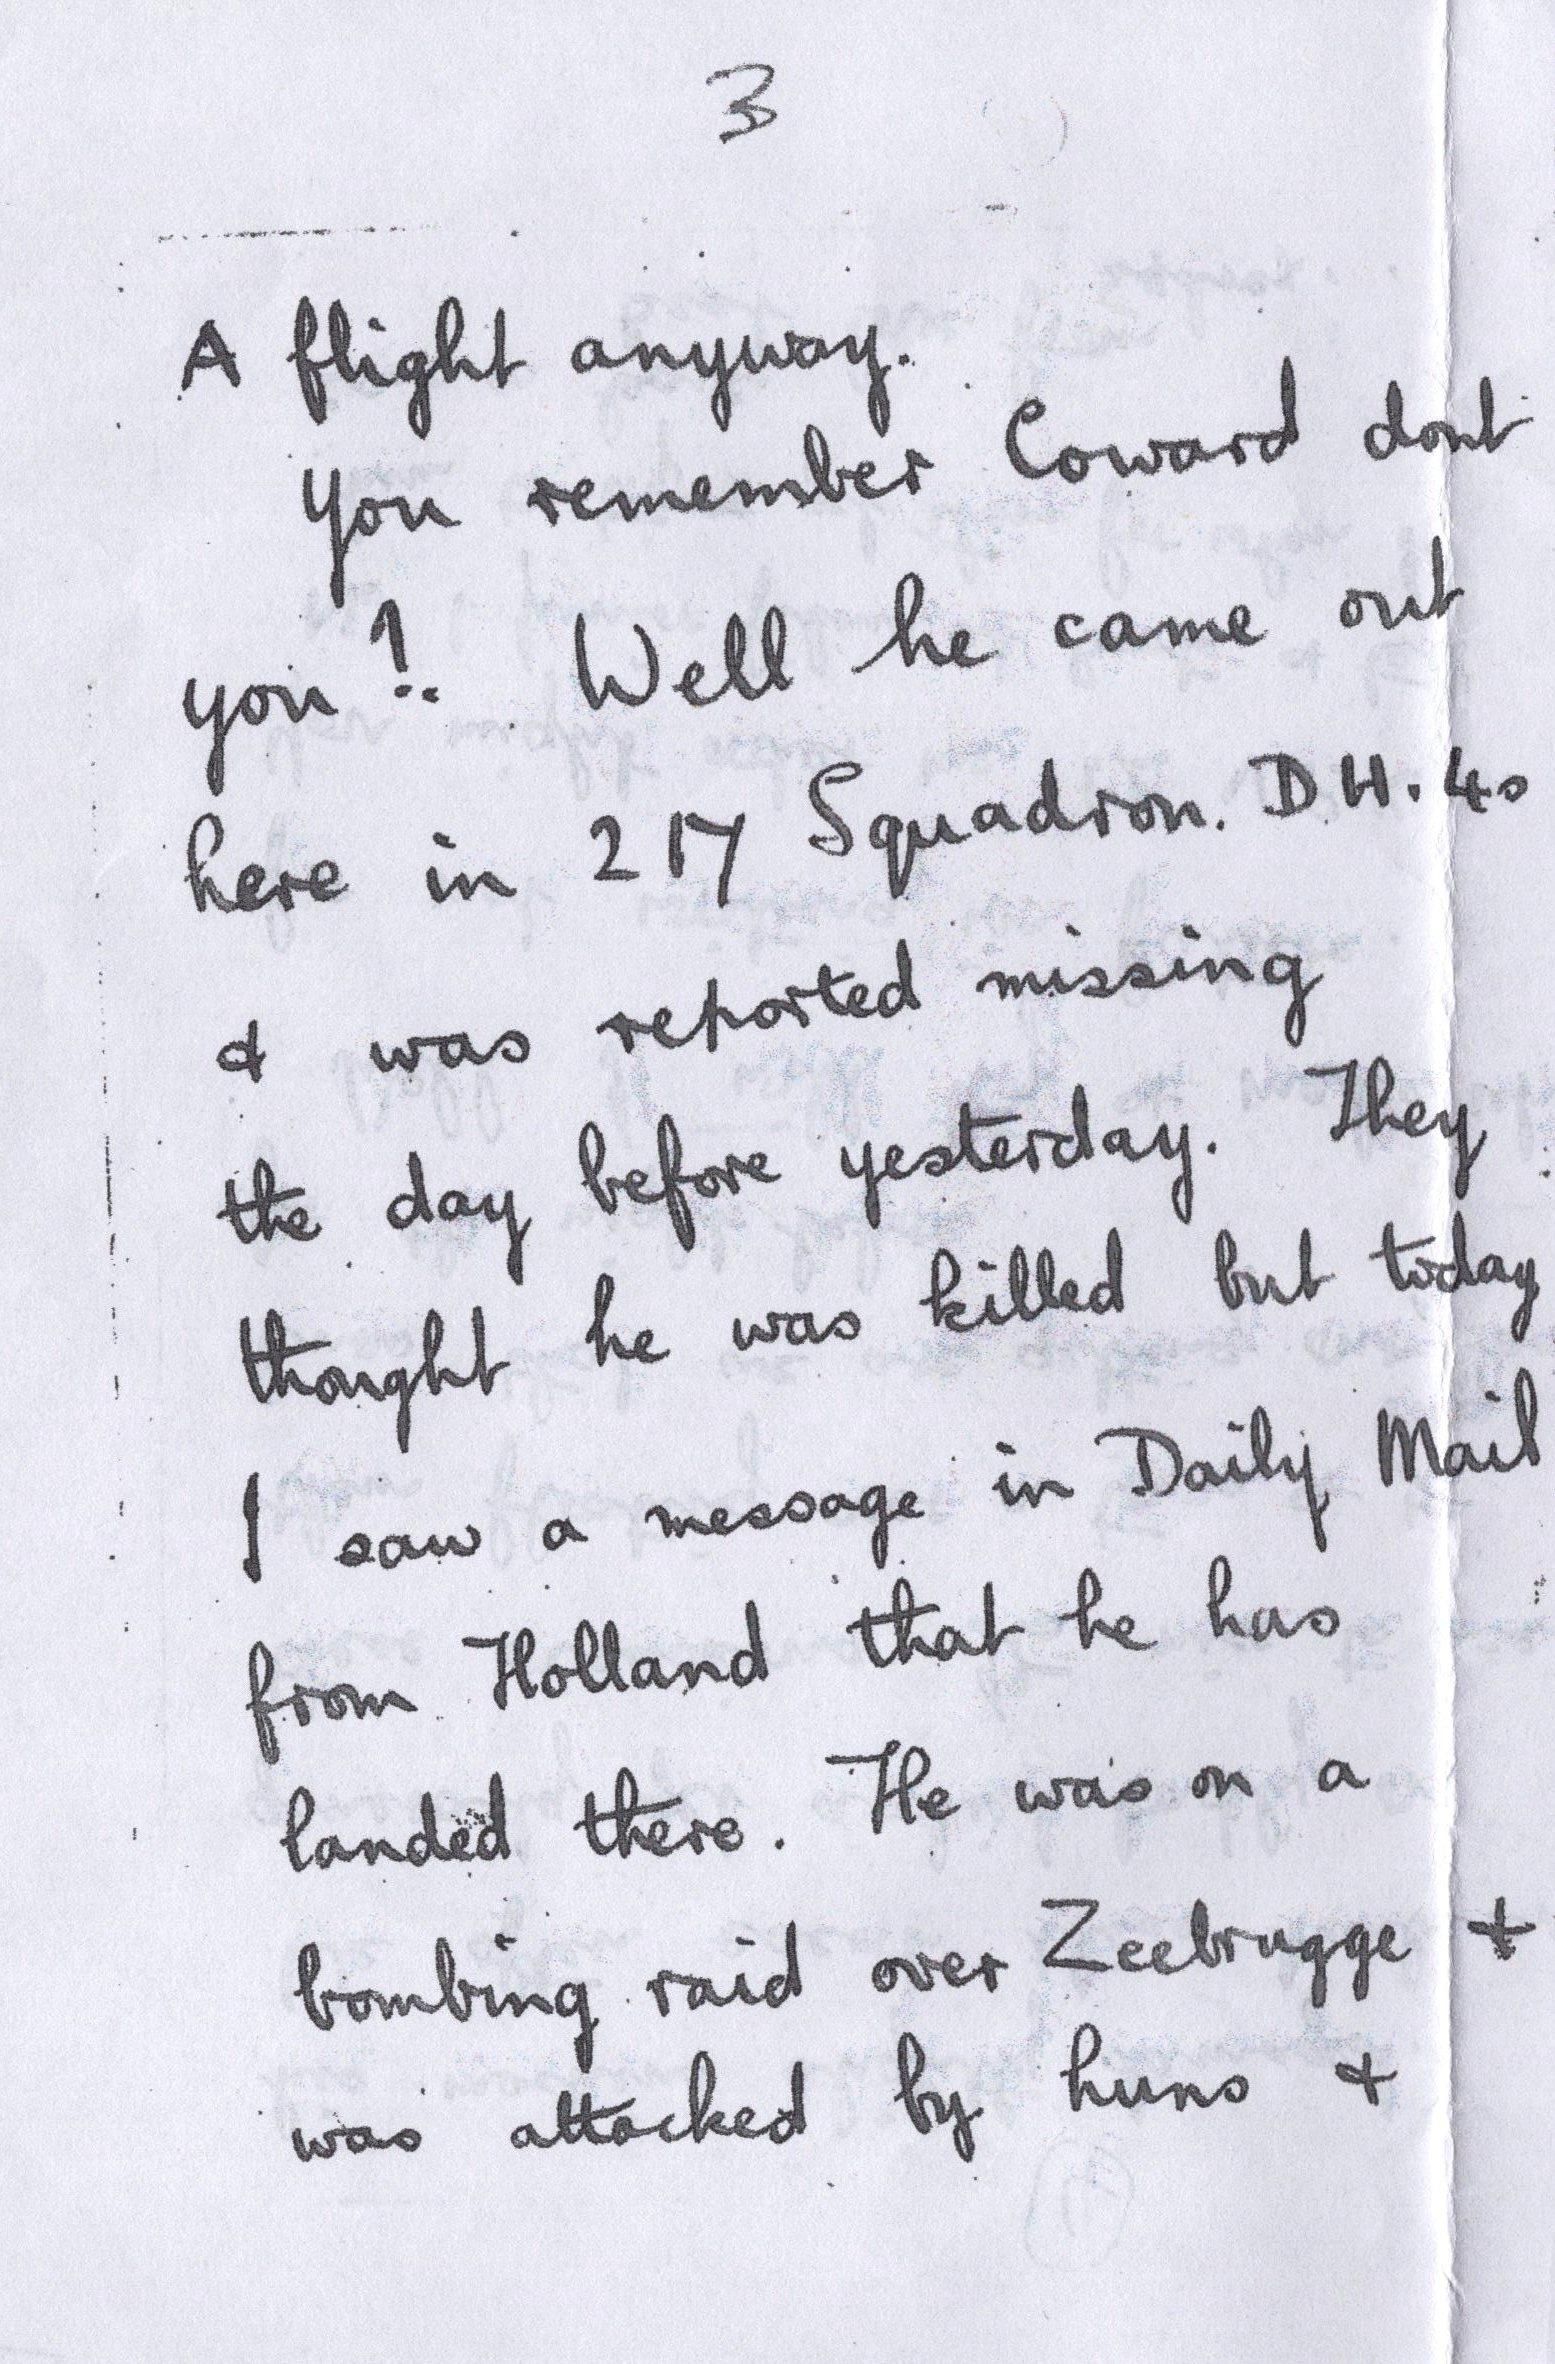 3
A flight anyway.
You remember Coward dont
you? Well he came out
here in 217 Squadron. D.H.4s
& was reported missing
the day before yesterday. They
thought he was killed but today
I saw a message in Daily Mail
from Holland that he has
landed there. He was on a
bombing raid over Zeebrugge &
was attacked by huns &